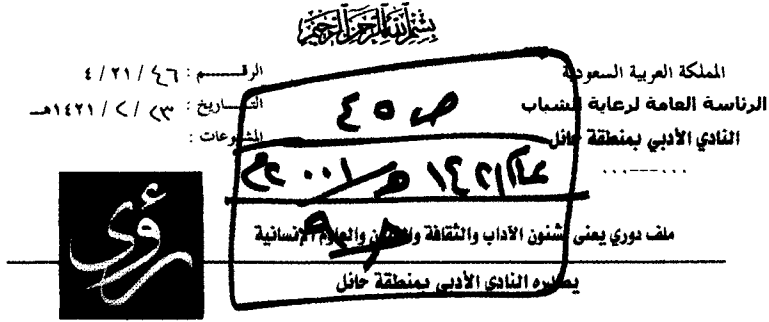 بسم الله الرحمن الرحيم
المملكة العربية السعودية
الرئاسة العامة لرعاية الشباب
النادي الأدبي بمنطقة حائل
الرقـــم : ٤٦ / ٢١ / ٤
التــاريخ : ٢٣ / ٢ / ١٤٢١هـ
المشفوعات :
ص ٤٥
١٤٢١ هـ / ٢٠٠١م
رؤى
ملف دوري يعنى بشئون الآداب والثقافة والفنون والعلوم الإنسانية
يصدره النادي الأدبي بمنطقة حائل